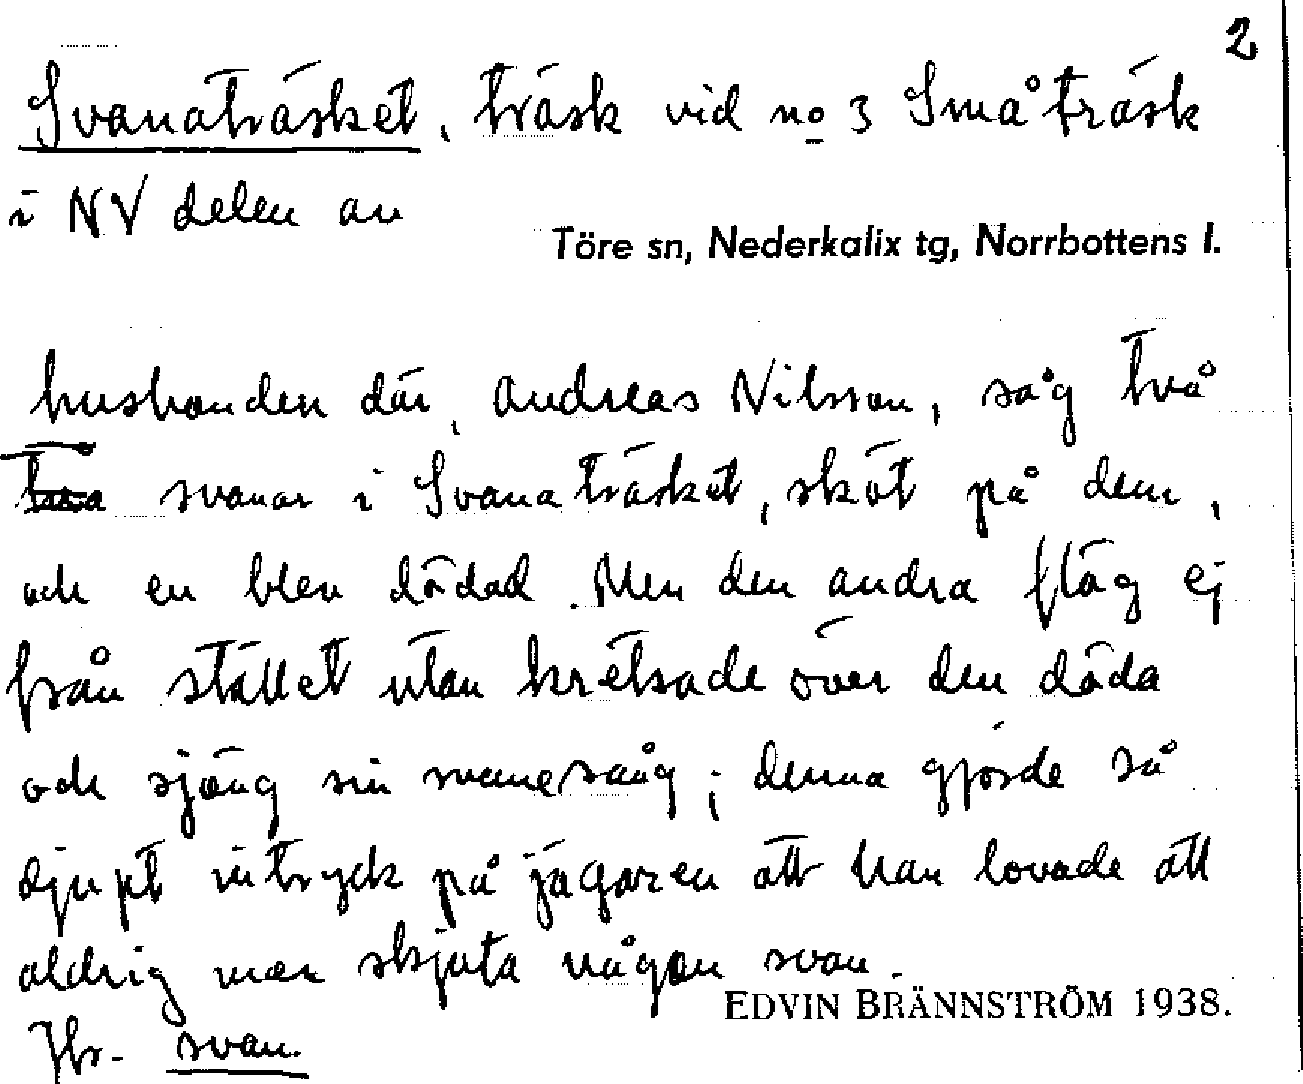 2
Svanaträsket, träsk vid no 3 Småträsk
i NV delen av
Töre sn, Nederkalix tg, Norrbottens l.
husbonden där, Andreas Nilsson, såg två
svanar i Svanaträsket, sköt på dem,
och en blev dödad. Men den andra flög ej
från stället utan kretsade över den döda
och sjöng sin svanesång; denna gjorde så
djupt intryck på jägaren att han lovade att
aldrig mer skjuta någon svan.
EDVIN BRÄNNSTRÖM 1938.
svan.